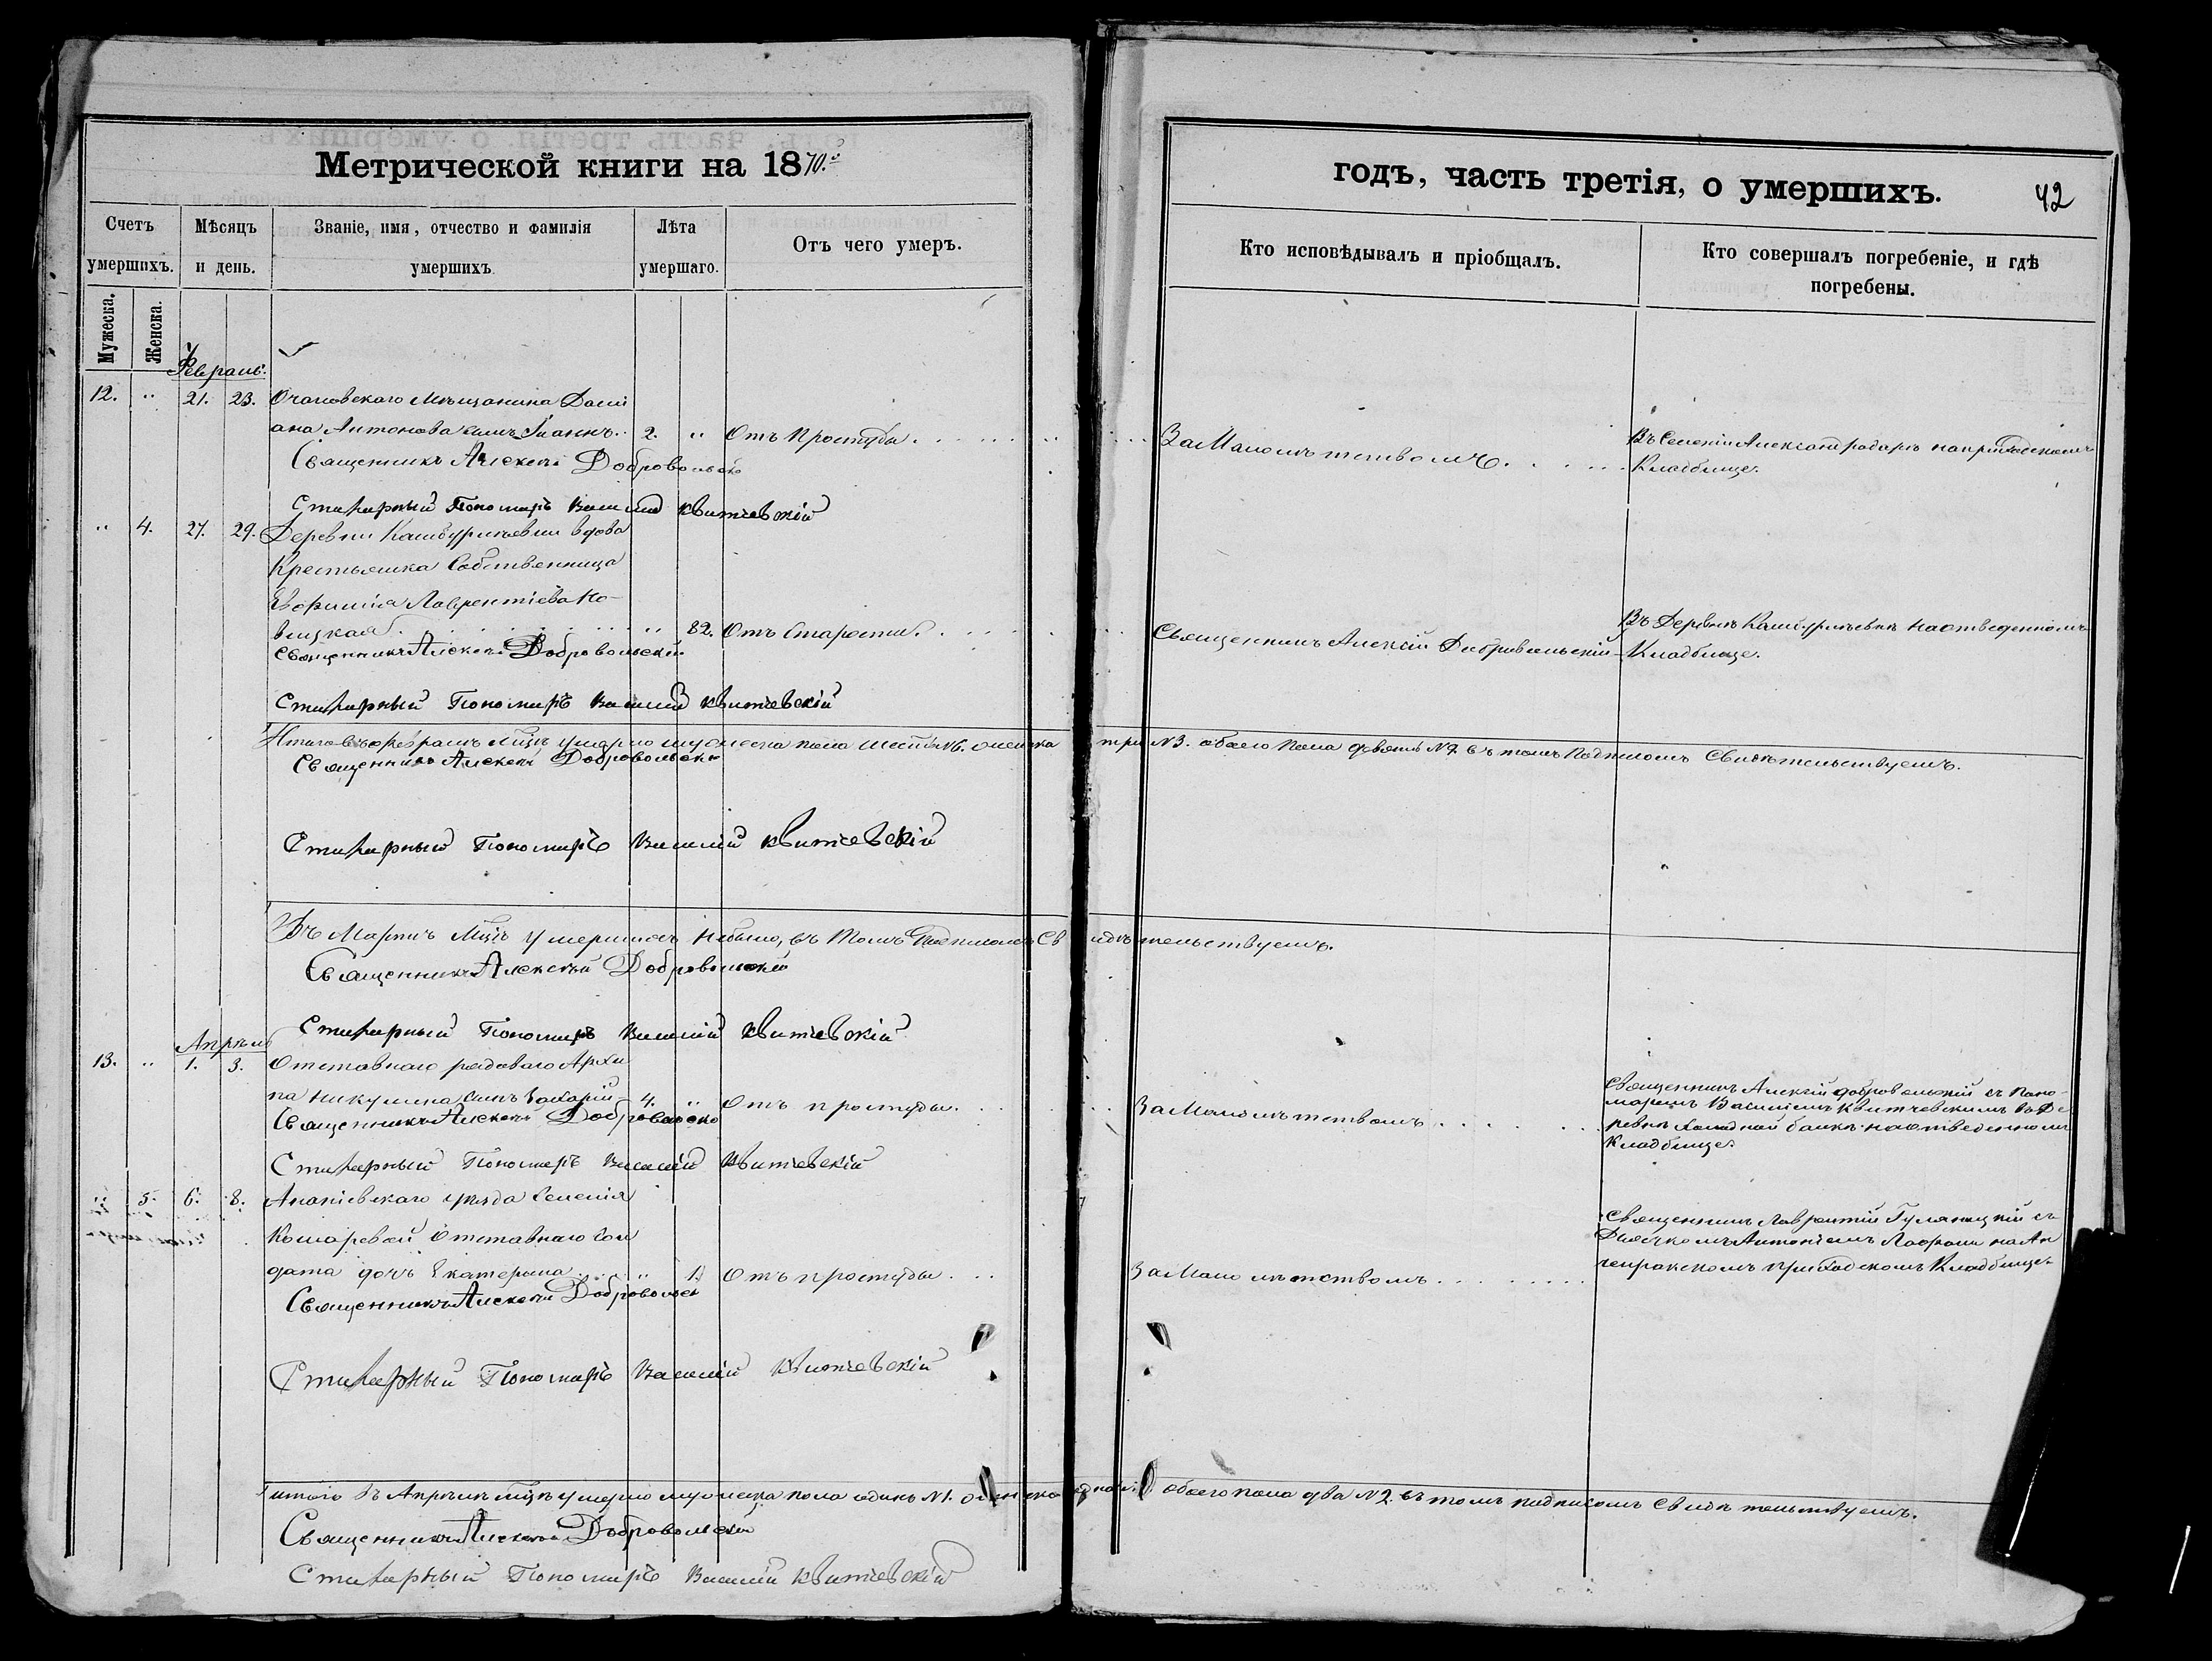 Метрической книги на 1870.й
годъ, часть третія, о умершихъ.
42
Счетъ умершихъ.
Мѣсяцъ и день.
Званіе, имя, отчество и фамилія умершихъ
Лѣта умершаго.
Отъ чего умеръ.
Кто исповѣдывалъ и пріобщалъ.
Кто совершалъ погребеніе, и гдѣ погребены.
Мужеска.
Женска.
Февраль.
12. " 21. 23. Очаковскаго Мѣщанина Даміи
ана Антонова сынъ Іоаннъ. 2. " Отъ простуды.
За Малолѣтствомъ.
Въ Селеніи Александродарѣ на приходскомъ
Кладбище.
Священникъ Алексѣй Добровольскій
Стихарный Пономарь Василій Квитчевскій
" 4. 27. 29. Деревни вдова
Крестьянка Собственница
Евфимія Лаврентіева Но-
вицкая " 82. Отъ Старости.
Священникъ Алексій Добровольскій
Въ Деревнѣ на отведенномъ
Кладбище.
Священникъ Алексѣй Добровольскій
Стихарный Пономарь Василій Квитчевскій
Итого въ февралѣ м-цѣ умерло мужеска пола шесть №6. женска три №3. обоего пола девять №9. въ томъ подписомъ Свидѣтельствуемъ.
Священникъ Алексѣй Добровольскій
Стихарный Пономарь Василій Квитчевскій
Въ Мартѣ М-цѣ умершихъ небыло, въ томъ Подписомъ Свидѣтельствуемъ.
Священникъ Алексѣй Добровольскій
Стихарный Пономарь Василій Квитчевскій
Апрѣль
13. " 1. 3. Отставного рядоваго Архи
па Никулина сынъ Захарій 4. " Отъ простуды.
За Малолѣтствомъ
Священникъ Алексѣй Добровольскій съ Поно-
маремъ Василіемъ Квитчевскимъ въ Де
ревнѣ Холодной балкѣ на отведенномъ
Кладбище.
Священникъ Алексѣй Добровольскій
Стихарный Пономарь Василій Квитчевскій
" 5. 6. 8. Ананіевскаго уѣзда Селенія
Комаревой Отставнаго Сол
дата дочь Екатерина " 1. Отъ простуды.
За Мало лѣтствомъ
Священникъ Лаврентій Гуляницкій съ
Дьячкомъ Антоніемъ на
приходскомъ Кладбище
Священникъ Алексѣй Добровольскій
Стихарный Пономарь Василій Квитчевскій
Итого Въ Апрѣлѣ м-цѣ умерло мужеска пола одинъ №1. женска одна обоего пола два №2. въ томъ подписомъ Свидѣтельствуемъ.
Священникъ Алексѣй Добровольскій
Стихарный Пономарь Василій Квитчевскій